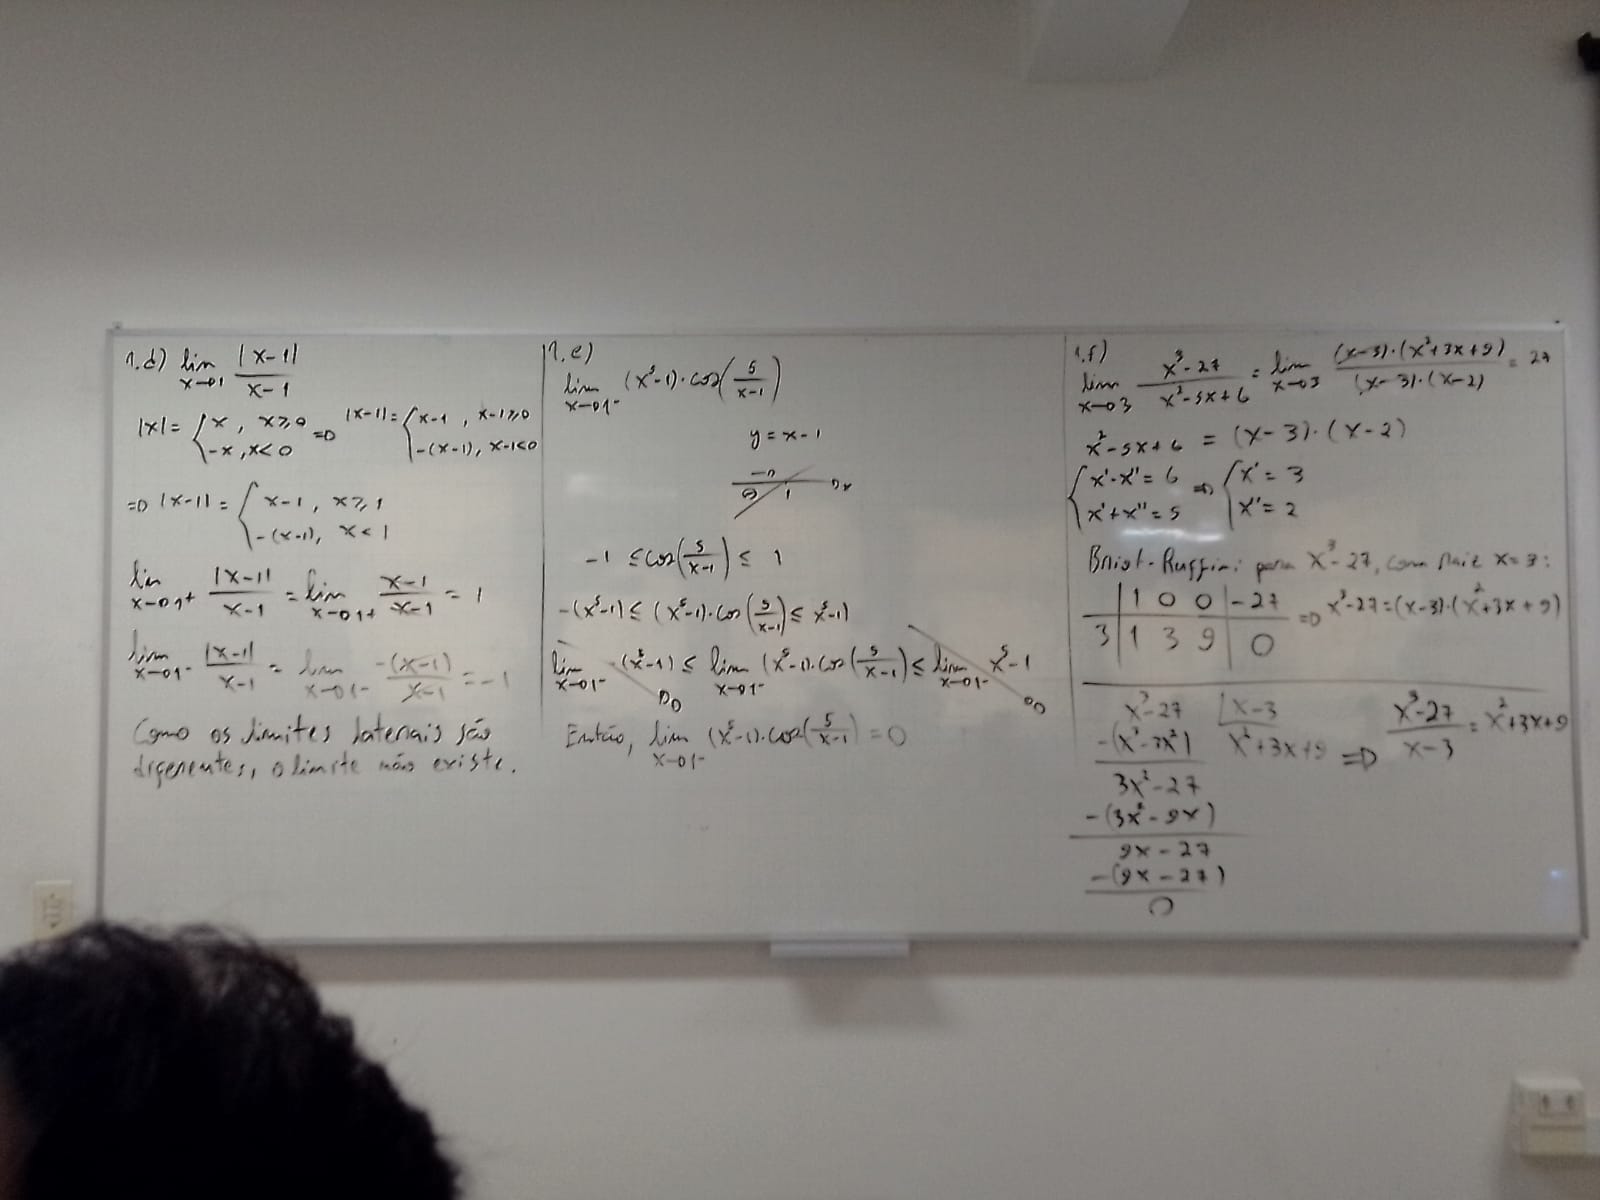 1.d) lim x→1 |x-1|/(x-1)
|x| = { x, x≥0 ; -x, x<0 ⇒ |x-1| = { x-1, x-1≥0 ; -(x-1), x-1<0
⇒ |x-1| = { x-1, x≥1 ; -(x-1), x<1
lim x→1+ |x-1|/(x-1) = lim x→1+ (x-1)/(x-1) = 1
lim x→1- |x-1|/(x-1) = lim x→1- -(x-1)/(x-1) = -1
Como os limites laterais são
diferentes, o limite não existe.
1.e)
lim x→1- (x⁵-1)·cos(5/(x-1))
y = x-1
-1 ≤ cos(5/(x-1)) ≤ 1
-(x⁵-1) ≤ (x⁵-1)·cos(5/(x-1)) ≤ x⁵-1)
lim x→1- -(x⁵-1) ≤ lim x→1- (x⁵-1)·cos(5/(x-1)) ≤ lim x→1- x⁵-1
→0 →0
Então, lim x→1- (x⁵-1)·cos(5/(x-1)) = 0
1.f)
lim x→3 (x³-27)/(x²-5x+6) = lim x→3 (x-3)·(x²+3x+9)/(x-3)·(x-2) = 27
x²-5x+6 = (x-3)·(x-2)
{ x'·x''=6 ; x'+x''=5 ⇒ { x'=3 ; x''=2
Briot-Ruffini para x³-27, com raiz x=3:
| 1 0 0 | -27
3 | 1 3 9 | 0 ⇒ x³-27=(x-3)·(x²+3x+9)
x³-27 | x-3
-(x³-3x²) x²+3x+9 ⇒ (x³-27)/(x-3) = x²+3x+9
3x²-27
-(3x²-9x)
9x-27
-(9x-27)
0